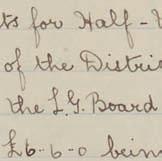 ts for Half-
of the Distri
the L.G. Board
£6-6-0 bein